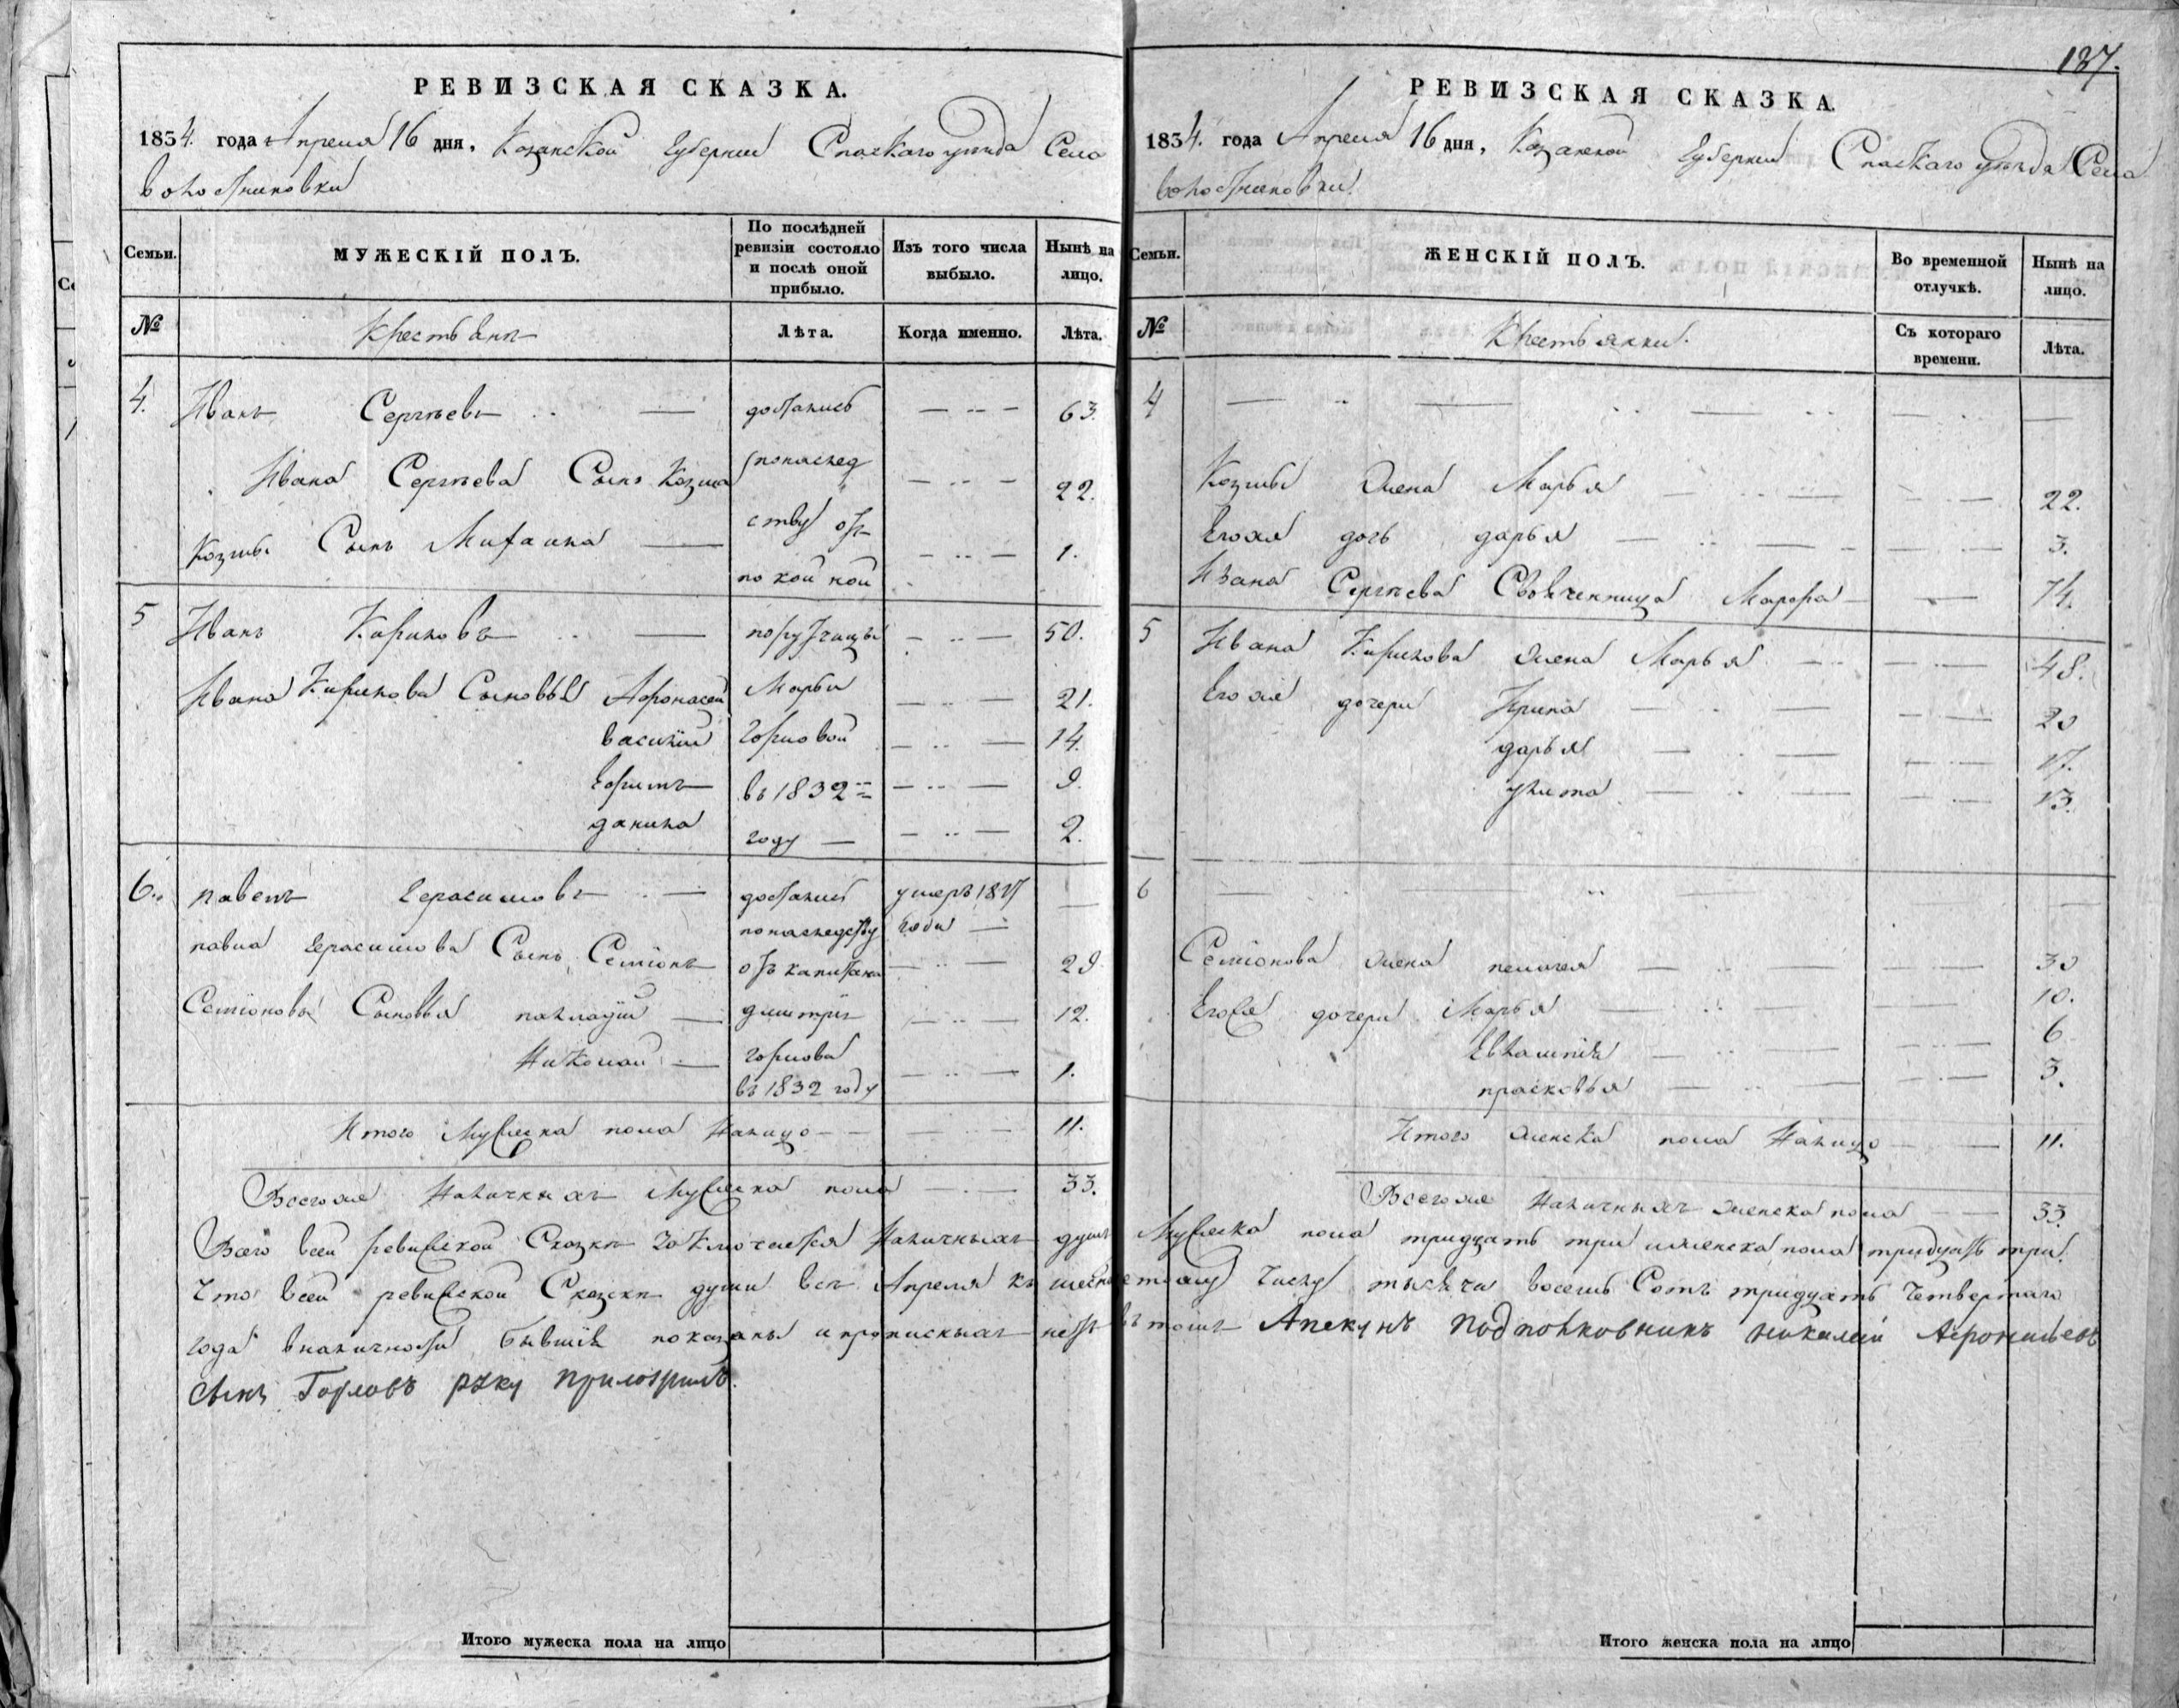 РЕВИЗСКАЯ СКАЗКА.
1834. года Апреля 16 дня, Казанской Губернии Спаскаго уѣзда Села
Волостниковки
Семьи. МУЖЕСКІЙ ПОЛЪ. По послѣдней ревизіи состояло и послѣ оной прибыло. Изъ того числа выбыло. Нынѣ на лицо.
№ Крестьянѣ Лѣта. Когда именно. Лѣта.
4. Иванъ Сергѣевъ достались 63.
Ивана Сергѣева Сынъ Козма понаслед 22.
Козмы Сынъ Михаила ству отъ 1.
покойной
5 Иванъ Кириловъ порутчицы 50.
Ивана Кирилова Сыновья Афонасей Марьи 21.
василий Горловой 14.
Ефимъ въ 1832 9.
данила году 2.
6. павелъ Герасимовъ достались умеръ 1827
павла Герасимова Сынъ Семіонъ понаследству года
отъ капитана 29
Семіоновы Сыновья дмитрія 12.
Николай Горлова 1.
въ 1832 году
Итого Мужеска пола Налицо 11.
Всегоже Наличныхъ Мужеска пола 33.
137.
РЕВИЗСКАЯ СКАЗКА.
1834. года Апреля 16 дня, Казанской Губернии Спаскаго уѣзда Села
Волостниковки.
Семьи. ЖЕНСКІЙ ПОЛЪ. Во временной отлучкѣ. Нынѣ на лицо.
№ Крестьянки. Съ котораго времени. Лѣта.
4
Козмы жена Марья 22.
Егожя дочь дарья 3.
Ивана Сергѣева Своячённица Марфа 74.
5 Ивана Кирилова жена Марья 48.
Егожя дочери Ирина 20
дарья 17.
улита 13.
6
Семіонова жена пелагея 30
Егожя дочери Марья 10.
Евлампія 6
прасковья 3.
Итого женска пола Налицо 11.
Всегоже Наличныхъ женска пола 33.
Всего всей ревиской Сказкѣ Заключается Наличныхъ душъ Мужеска пола тридцать три иженска пола тридцать три.
Что всей ревиской Сказкѣ души всѣ Апреля къ шеснатцетому числу тысяча восемь Сотъ тридцать Четвертаго
года вналичности бывшія показаны ипрописныхъ нетъ въ томъ Апекунъ подполковникъ николай Афонасьевъ
сынъ Горловъ руку приложилъ.
Итого мужеска пола на лицо
Итого женска пола на лицо